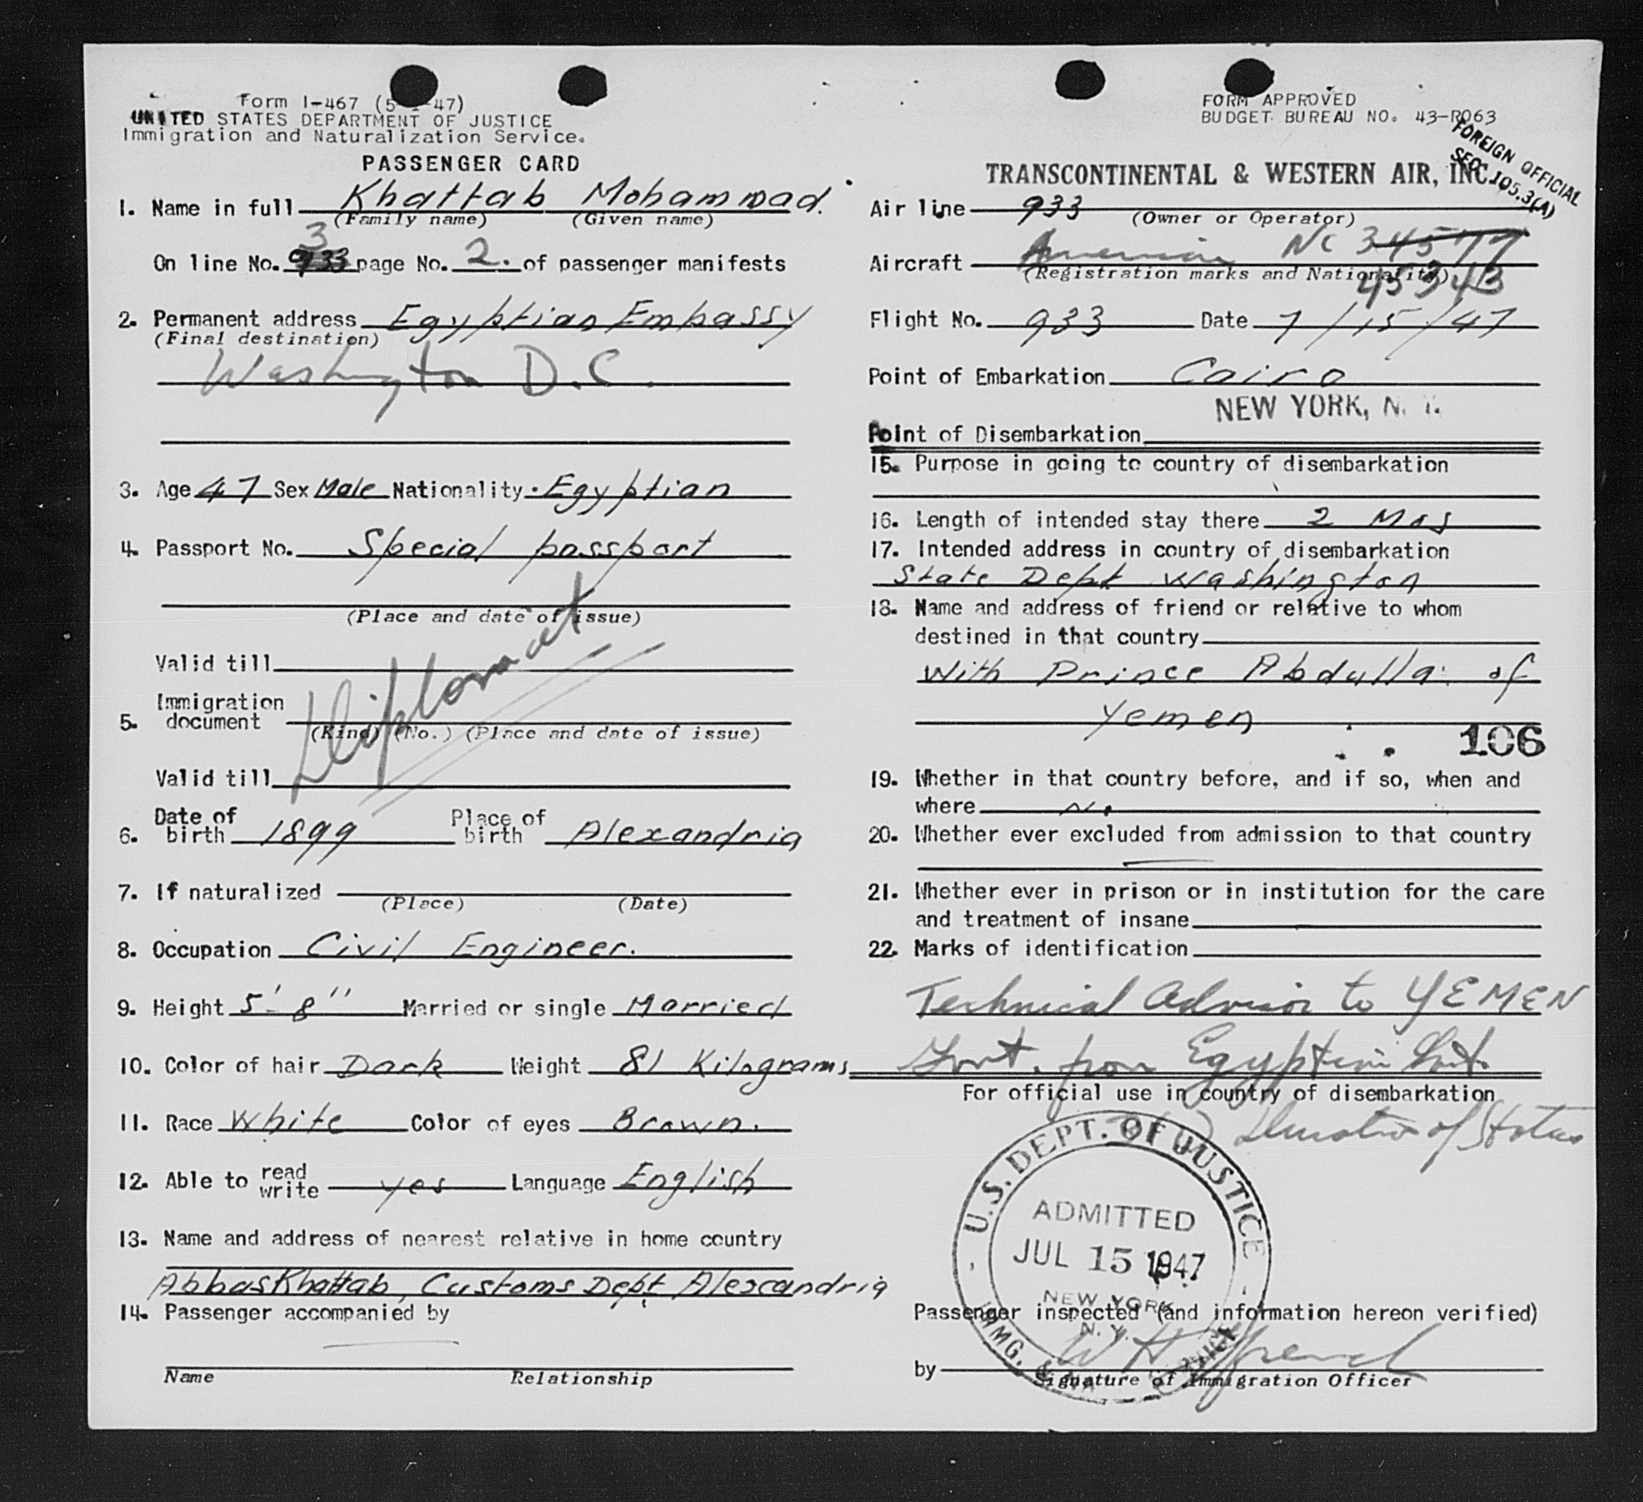 Form I-467 (5- -47)
UNITED STATES DEPARTMENT OF JUSTICE
Immigration and Naturalization Service.
PASSENGER CARD
1. Name in full Khattab Mohammad.
(Family name) (Given name)
3
On line No. 933 page No. 2. of passenger manifests
2. Permanent address Egyptian Embassy
(Final destination)
Washington D.C.
3. Age 47 Sex Male Nationality Egyptian
4. Passport No. Special passport
(Place and date of issue)
Diplomat
Valid till
5. Immigration document
(Kind) (No.) (Place and date of issue)
Valid till
6. Date of birth 1899 Place of birth Alexandria
7. If naturalized
(Place) (Date)
8. Occupation Civil Engineer.
9. Height 5' 8" Married or single Married
10. Color of hair Dark Weight 81 Kilograms
11. Race White Color of eyes Brown.
12. Able to read write yes Language English
13. Name and address of nearest relative in home country
Abbas Khattab, Customs Dept. Alexandria
14. Passenger accompanied by
Name Relationship
FORM APPROVED
BUDGET BUREAU NO. 43-R063
FOREIGN OFFICIAL
SEC. 105.3(A)
TRANSCONTINENTAL & WESTERN AIR, INC.
Air line 933
(Owner or Operator)
Aircraft American NC 34577
(Registration marks and Nationality)
45343
Flight No. 933 Date 7/15/47
Point of Embarkation Cairo
NEW YORK, N. Y.
Point of Disembarkation
15. Purpose in going to country of disembarkation
16. Length of intended stay there 2 Mos
17. Intended address in country of disembarkation
State Dept Washington
18. Name and address of friend or relative to whom
destined in that country
With Prince Abdulla of
Yemen
106
19. Whether in that country before, and if so, when and
where No
20. Whether ever excluded from admission to that country
21. Whether ever in prison or in institution for the care
and treatment of insane
22. Marks of identification
Technical Advisor to YEMEN
Govt. from Egyptian Govt.
For official use in country of disembarkation
Duration of Status
U.S. DEPT. OF JUSTICE
ADMITTED
JUL 15 1947
NEW YORK
N. Y.
IMMG.
Passenger inspected (and information hereon verified)
by
Signature of Immigration Officer